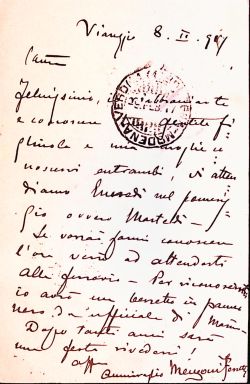 Viareggio 8. IX. 917
Caro
Felicissimo,
e conoscere gentile fi-
gliuola e una moglie
noscervi entrambi, vi atten-
diamo Mercoledì nel pomerig-
gio ovvero Martedì –
Se vorrai farmi conoscere
l'ora verrò ad attenderti
alla ferrovia – Per riconoscersi
io avrò un berretto in panno
nero da ufficiale di Marina
Dopo tanti anni sarà
una festa rivedersi!
aff
Ammiraglio